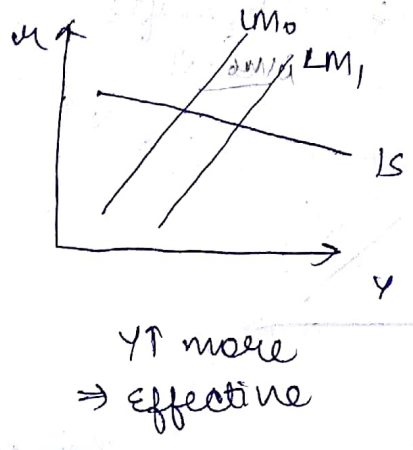 LM₀
r
LM₁
IS
Y
Y↑ more
⇒ effective